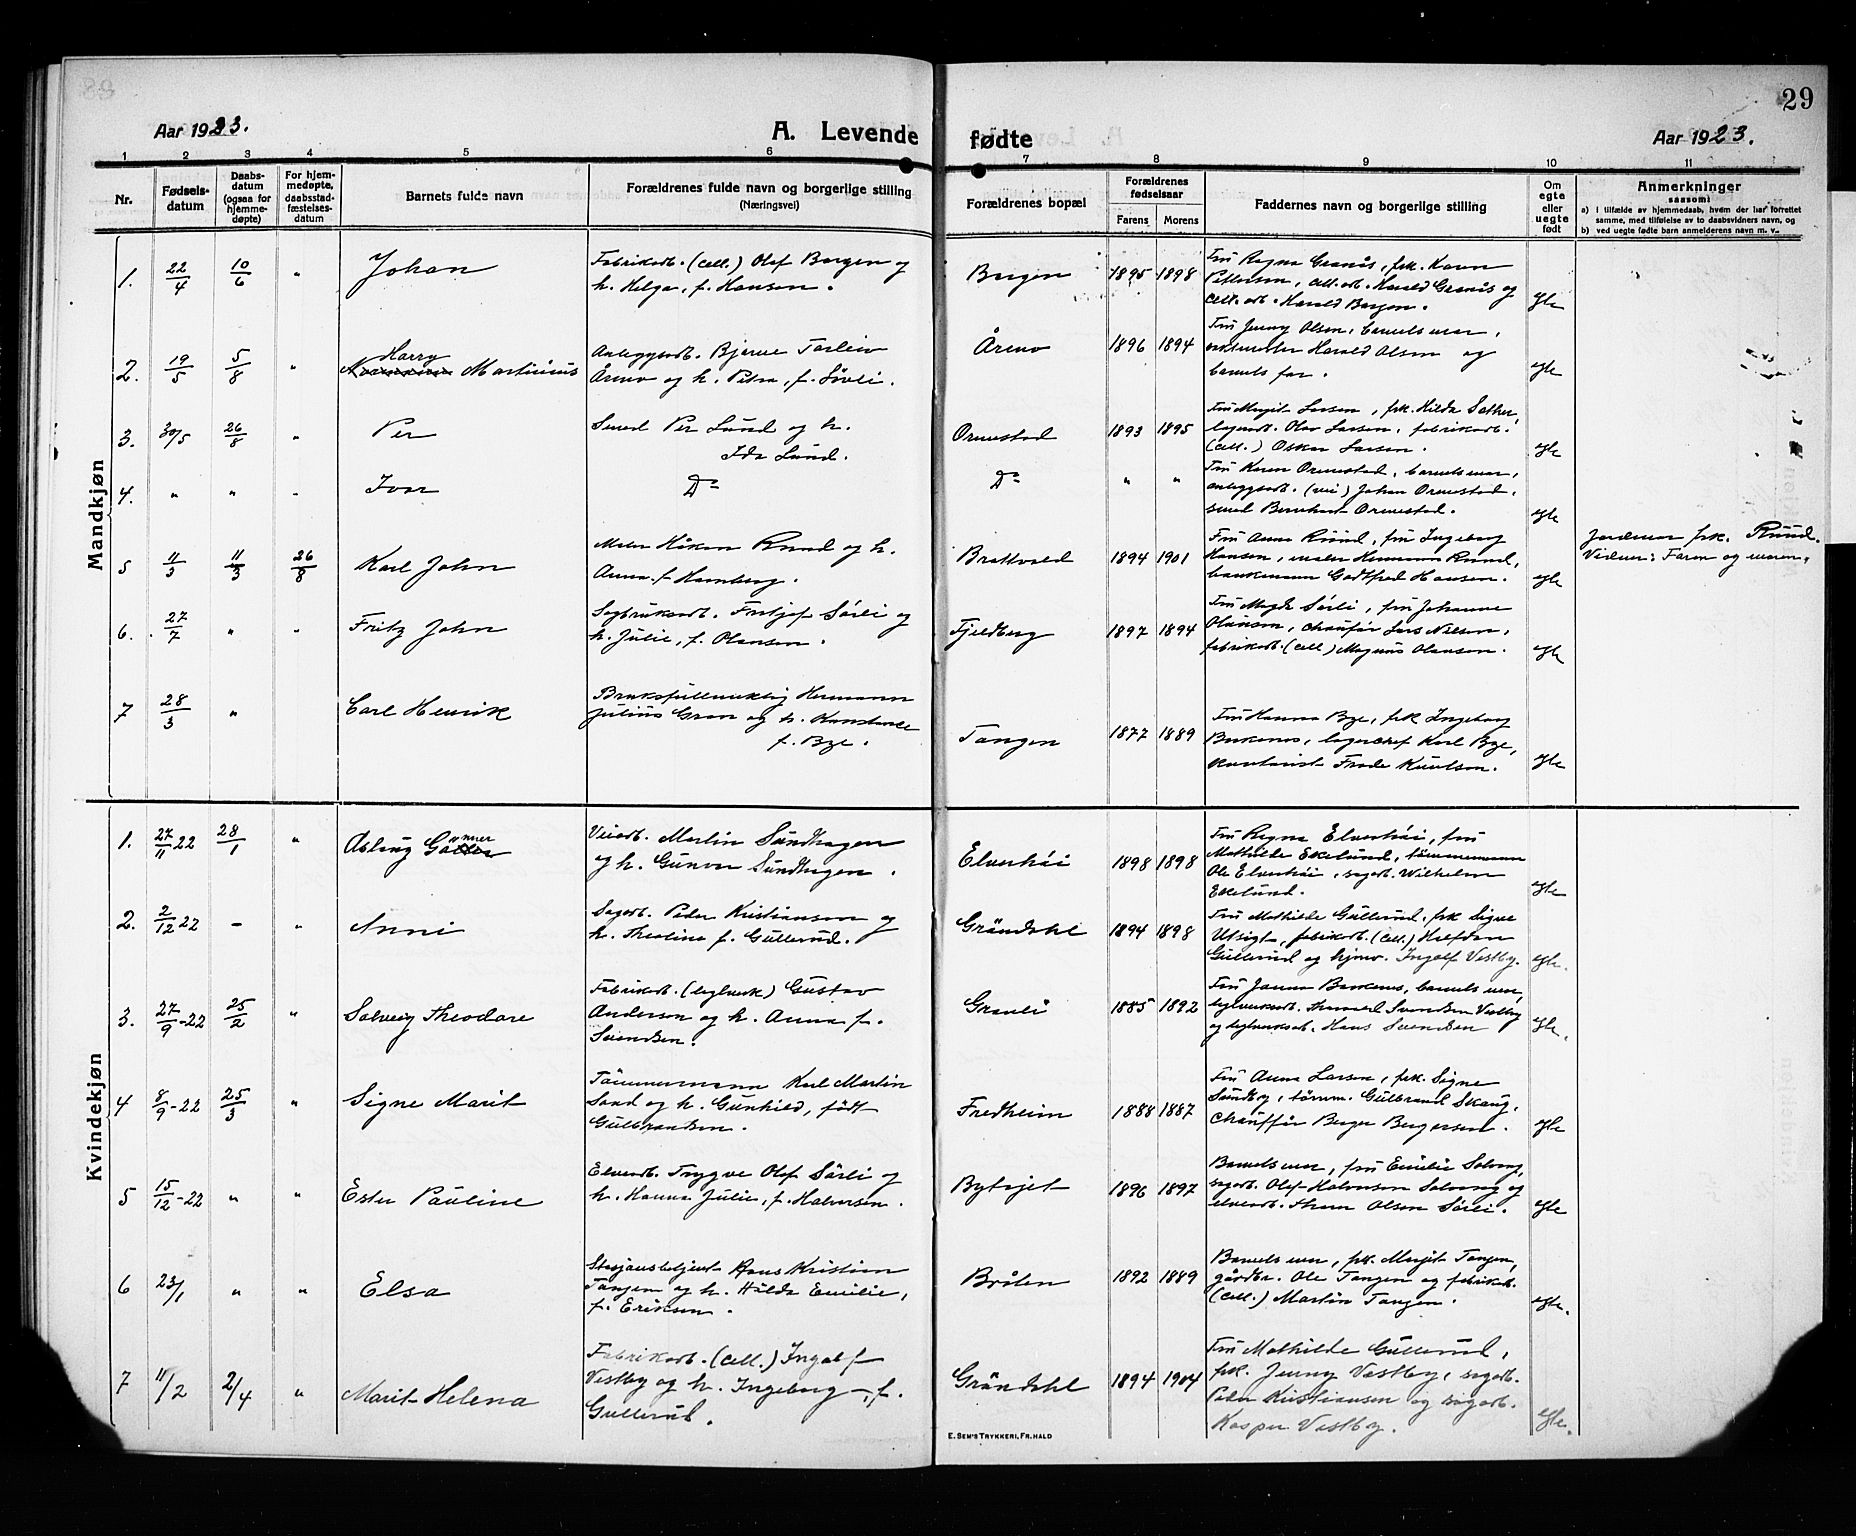 29
Aar 1923.
A. Levende fødte
Aar 1923.
1 2 3 4 5 6 7 8 9 10 11
Nr.
Fødsels-
datum
Daabs-
datum
(ogsaa for
hjemme-
døpte)
For hjem-
medøpte,
daabsstad-
fæstelses-
datum
Barnets fulde navn
Forældrenes fulde navn og borgerlige stilling
(Næringsvei)
Forældrenes bopæl
Forældrenes
fødselsaar
Farens Morens
Faddernes navn og borgerlige stilling
Om
egte
eller
uegte
født
Anmerkninger
saasom:
a) i tilfælde av hjemmedaab, hvem der har forrettet
samme, med tilføielse av to daabsvidners navn, og
b) ved uegte fødte barn anmelderens navn m. v.
Mandkjøn
1. 22/4 10/6 " Johan
Fabrikarb. (cell.) Olef Borgen og
h. Helga, f. Hansen.
Borgen 1895 1898
Fru Ragna Granås, frk. Karen
Pettersen, cell. arb. Harald Granås og
cell. arb. Harald Borgen.
egte
2. 19/5 5/8 " Harry Martinius
Anleggsarb. Bjarne Torleiv
Åmo og h. Petra, f. Sövli.
Åmo 1896 1894
Fru Jenny Olsen, barnets mor,
Harald Olsen og
barnets far.
egte
3. 30/5 26/8 " Per
Smed Per Lund og h.
Ida Lund.
Ormestad 1893 1895
Fru Margit Larsen, frk. Hilda Sæther,
Olav Larsen, fabrikarb.
(cell.) Oskar Larsen.
egte
4. " " " Ivar
Do
Do " "
Fru Karen Ormestad, barnets mor,
anleggsarb. (vei) Johan Ormestad,
smed Bernhard Ormestad.
egte
5 11/3 11/3 26/8 Karl John
Maler Håkon Ruud og h.
Anna f. Homberg.
Brattvold 1894 1901
Fru Anna Ruud, fru Ingeborg
Hansen, maler Hermann Ruud,
Godtfred Hansen.
egte
Jordmor frk. Ruud.
Vidner: Faren og moren.
6. 27/7 " " Fritz John
Sagbruksarb. Fritjof Sörli og
h. Julie, f. Olausen.
Fjeldberg 1897 1894
Fru Magda Sörli, fru Johanne
Olausen, chaufför Lars Nilsen,
fabrikarb. (cell) Magnus Olausen.
egte
7 28/3 " Carl Henrik
Bruksfullmektig Hermann
Julius Gran og h. Konstance
f. Bye.
Tangen 1877 1889
Fru Hanna Bye, frk Ingeborg
lagerchef Karl Bye,
kontorist Frode Knutson.
egte
Kvindekjøn
1. 27/11 22 28/1 " Aslaug Gunver
Veiarb. Martin Sundhagen
og h. Gunvor Sundhagen.
Elverhöi 1898 1898
Fru Ragna Elverhöi, fru
Mathilde Ekelund, tömmermann
Ole Elverhöi, sagarb. Wilhelm
Ekelund.
egte
2. 2/12 22 - " Anni
Sagarb. Peder Kristiansen og
h. Theoline f. Gullerud.
Gröndahl 1894 1898
Fru Mathilde Gullerud, frk Signe
Utsigt, fabrikarb. (cell.) Halfdan
Gullerud og Ingolf Vestby.
egte.
3. 27/9-22 25/2 " Solveig Theodore
Fabrikarb. (teglverk) Gustav
Anderson og h. Anna f.
Svendsen.
Granli 1885 1892
Fru Janna Bakkenes, barnets mor,
teglverksarb. Svendsen Vestby
og teglverksarb. Hans Svendsen
egte.
4 8/9-22 25/3 " Signe Marit
Tömmermann Karl Martin
Sand og h. Gunhild, född
Gulbrandsen.
Fredheim 1888 1887
Fru Anna Larsen, frk. Signe
Sundby, tömm. Gulbrand Skaug,
Chaufför Berger Bergersen.
egte
5 15/12-22 " " Ester Pauline
Elvearb. Trygve Olef Sörli og
h. Hanna Julie, f. Halvorsen.
Bytajet 1896 1897
Barnets mor, fru Emilie Solvang,
sagarb. Olef Halvorsen Solvang og
elvearb. Thom Olsen Sörli.
egte
6 23/1 " " Elsa
Stasjonsbetjent Hans Kristian
Tangen og h. Hilda Emilie,
f. Eriksen.
Bråten 1892 1889
Barnets mor, frk. Margit Tangen,
gårdbr. Ole Tangen og fabrikarb.
(cell.) Martin Tangen.
egte.
7 11/2 2/4 " Marit Helena
Fabrikarb. (cell.) Ingolf
Vestby og h. Ingeborg, f.
Gullerud.
Gröndahl 1894 1904
Fru Mathilde Gullerud,
frk. Jenny Vestby, sagarb.
Peder Kristiansen og sagarb.
Kasper Vestby.
egte.
E. SEM'S TRYKKERI, FR. HALD